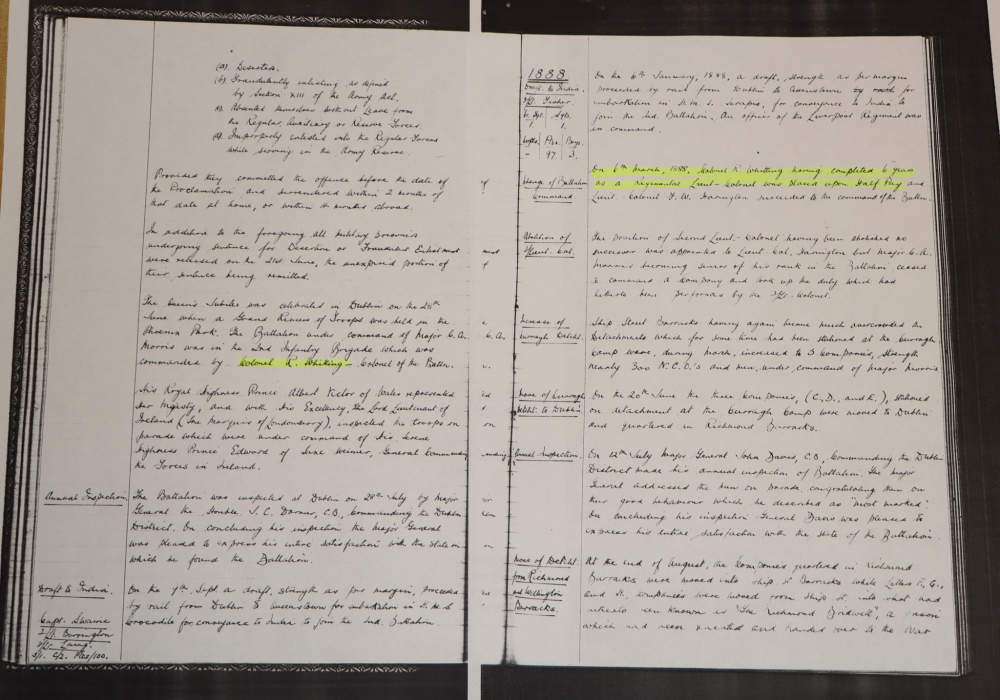 (a) Desertion.
(b) Fraudulently enlisting as defined
by Section XIII of the Army Act.
(c) Absented themselves without Leave from
the Regular, Auxiliary or Reserve Forces.
(d) Improperly enlisted into the Regular Forces
while serving in the Army Reserve.
Provided they committed the offence before the date of
the Proclamation and surrendered within 2 months of
that date at home, or within 4 months abroad.
In addition to the foregoing all military prisoners
undergoing sentence for Desertion or Fraudulent Enlistment
were released on the 21st June, the unexpired portion of
their sentence being remitted.
The Queen's Jubilee was celebrated in Dublin on the 28th
June when a Grand Review of Troops was held in the
Phoenix Park. The Battalion under command of Major C. A.
Morris was in the 2nd Infantry Brigade which was
commanded by Colonel R. Whiting - Colonel of the Battn.
His Royal Highness Prince Albert Victor of Wales represented
Her Majesty, and with His Excellency, the Lord Lieutenant of
Ireland (The Marquess of Londonderry), inspected the troops on
parade which were under command of His Serene
Highness Prince Edward of Saxe Weimar, General Commanding
the Forces in Ireland.
Annual Inspection
The Battalion was inspected at Dublin on 28th July by Major
General the Honble. J. C. Dormer, C.B., Commanding the Dublin
District. On concluding his inspection the Major General
was pleased to express his entire satisfaction with the state in
which he found the Battalion.
Draft to India.
Capt. Swaine
2/Lt. Burrington
On the 7th Sept. a draft, strength as per margin, proceeded
by rail from Dublin to Queenstown for embarkation in H.M.S.
Crocodile for conveyance to India to join the 2nd Battalion.
1888
Draft to India.
On the 6th January, 1888, a draft, strength as per margin
proceeded by rail from Dublin to Queenstown en route for
embarkation in H.M.S. Serapis, for conveyance to India to
join the 2nd Battalion. An officer of the Liverpool Regiment was
in command.
Sgts. Ptes. Boys.
- 97. 3.
Change of Battalion
Command
On 6th March, 1888, Colonel R. Whitting having completed 6 years
as a regimental Lieut-Colonel was placed upon Half Pay and
Lieut. Colonel F. W. Farrington succeeded to the command of the Battn.
Abolition of
2/Lieut. Col.
The position of Second Lieut.-Colonel having been abolished no
successor was appointed to Lieut. Col. Farrington but Major C. A.
Morris becoming senior of his rank in the Battalion ceased
to command a Company and took up the duty which had
hitherto been performed by the 2/Lt. Colonel.
Increase of
Curragh Detcht.
Ship Street Barracks having again become much overcrowded the
detachments which for some time had been stationed at the Curragh
Camp were, during March, increased to 3 Companies, strength
nearly 300 N.C.O.'s and men, under command of Major Morris
Move of Curragh
Detcht. to Dublin
On the 20th June the three Companies, (C., D., and E.), stationed
on detachment at the Curragh Camp were moved to Dublin
and quartered in Richmond Barracks.
Annual Inspection.
On 12th July Major General John Davis, C.B., Commanding the Dublin
District made his annual inspection of Battalion. The Major
General addressed the men on parade congratulating them on
their good behaviour which he described as "most marked".
On concluding his inspection General Davis was pleased to
express his entire satisfaction with the state of the Battalion.
Move of Detcht.
from Richmond
and Wellington
Barracks.
At the end of August, the Companies quartered in Richmond
Barracks were moved into Ship St. Barracks while Letters
and Companies were moved from Ship St. into what had
hitherto been known as "The Richmond Bridewell", a prison
which had been vacated and handed over to the War